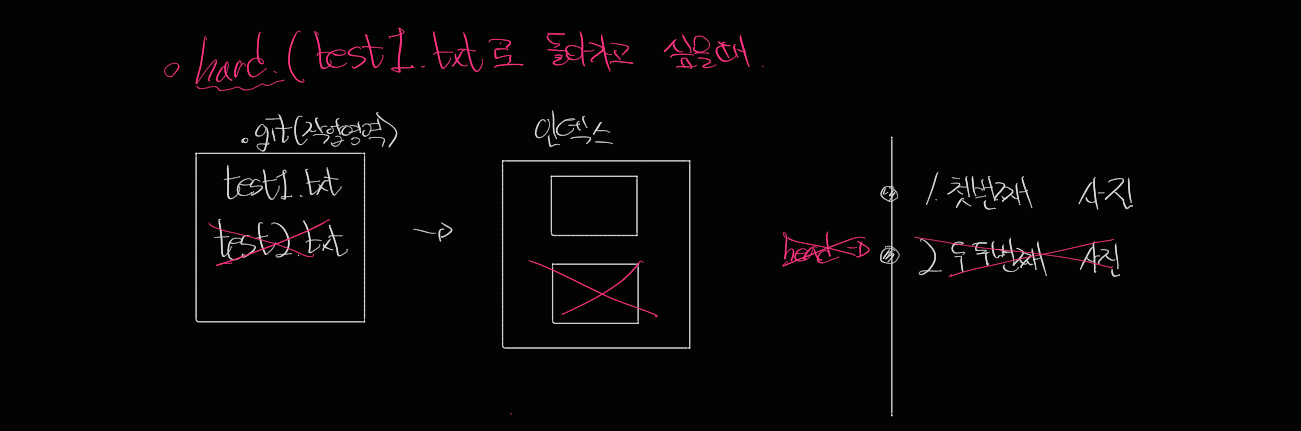 hard. (test1.txt로 돌아가고 싶을때.
.git(작업영역)
test1.txt
test2.txt
인덱스
1. 첫번째 사진
head
2 두번째 사진